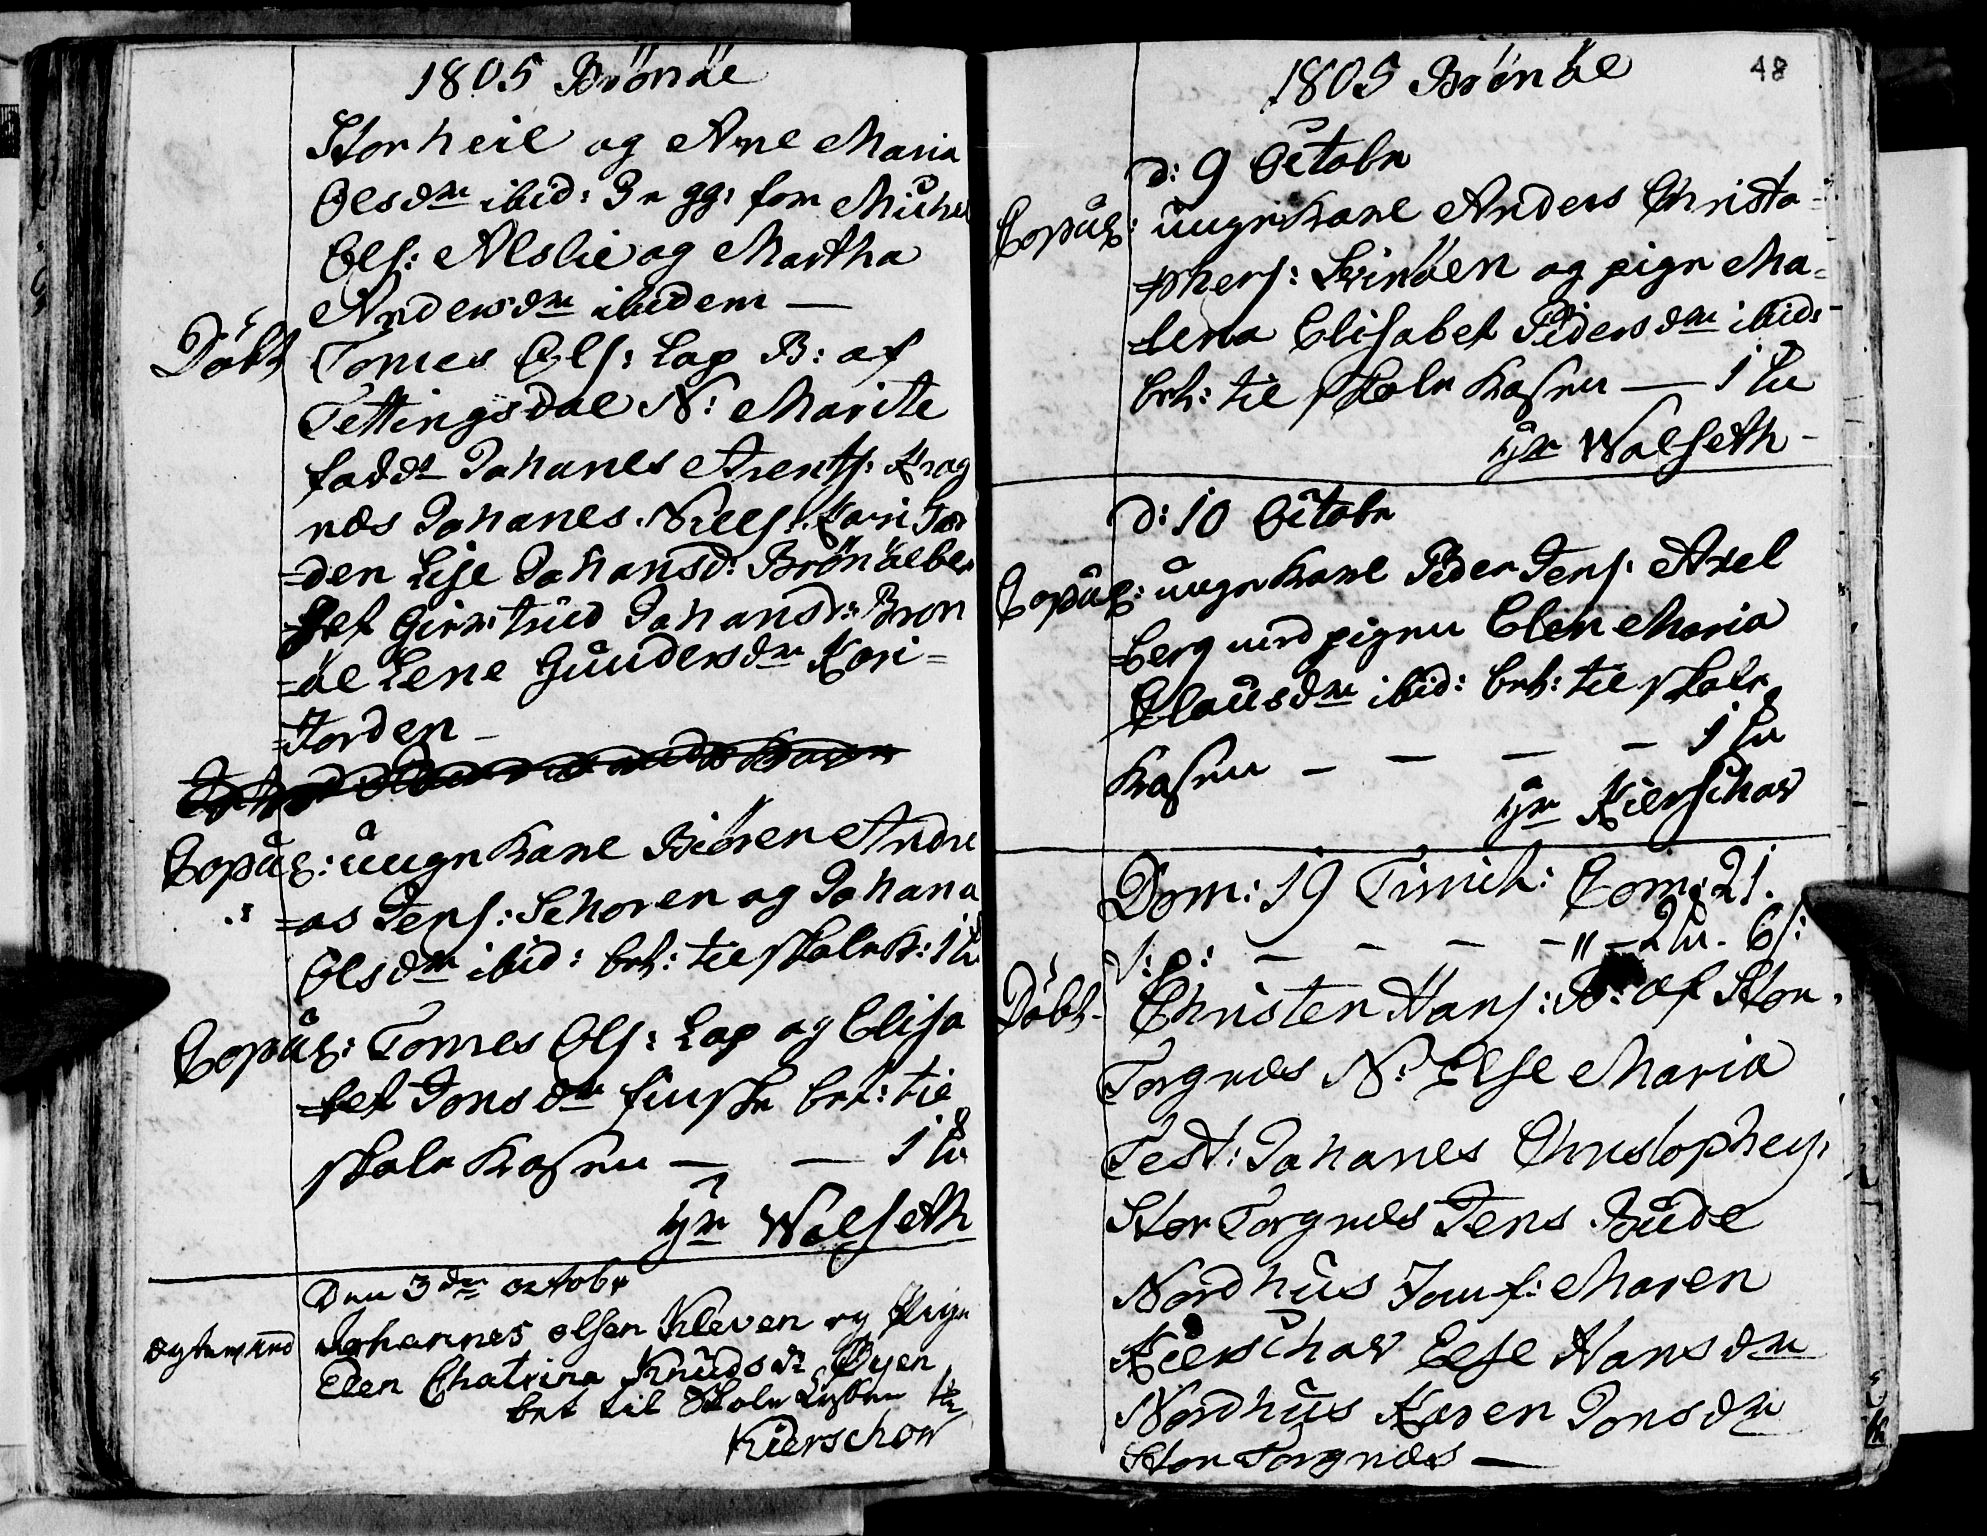 1805 Brönöe
Storheil og Ane Maria
Olsdtr ibid: 3n gg: fom Michel
Ols: Alslie og Martha
Andersdtr ibidem —
Döbt Tomes Ols: Lap B: af
Tettingsdal N: Marite
fadd Johanes Arents: Krog
næs Johanes Niels: Kari Tor
=den Lise Johansd: Brönöebe
set Giertrud Johansdr: Brön
=öe Lene Gundersdtr Kari=
=Torden —
Copul: ungkarl Biören Andre
=as Jens: Schoren og Johana
Olsdtr ibid: bet: til skolek: 1
Copul: Tomes Ols: Lap og Elisa
=bet Jonsdtr finske bet: til
skole Kassen — — 1
Hr Walseth
Den 3die octobr
Egteviet Johannes olsen Kleven og Pige
Elen Chatrina Knudsdr Øyen
bet til Skole Kassen
Kierschow
1805 Brönöe 48
d: 9 Octobr
Copul: ungkarl Anders Christo=
=phers: Qvinöen og pige Ma=
=lena Elisabet Pedersdtr ibid:
bet: til skole Kassen — 1
Hr Walseth —
d: 10 Octobr
Copul: ungkarl Peder Jens: Axel
=berg med pigen Elen Maria
Clausdtr ibid: bet: til skole
Kassen — — — — 1
Hr Kierschow
Dom: 19 Trinit: Com: 21.
— — — — " — 2 6
Döbt— Christen Hans: B: af Stor
Torgnes N: Else Maria
Test: Johanes Christophers:
Stor Torgnes Jens Bude
Nordhus Jomf: Maren
Kierschow Else Hansdtr
Nordhus Karen Jonsdtr
Stor Torgnæs —